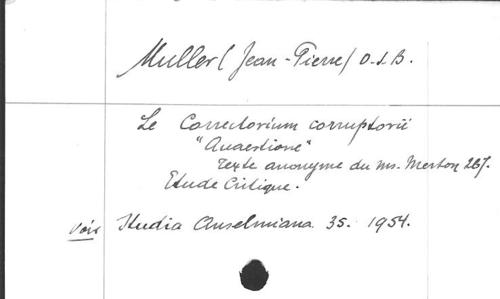 Muller (Jean-Pierre) O.S.B.
Le Correctorium corruptorii
"Quaestione"
Texte anonyme du ms. Merton 267.
Etude Critique.
Voir Studia Anselmiana. 35. 1954.